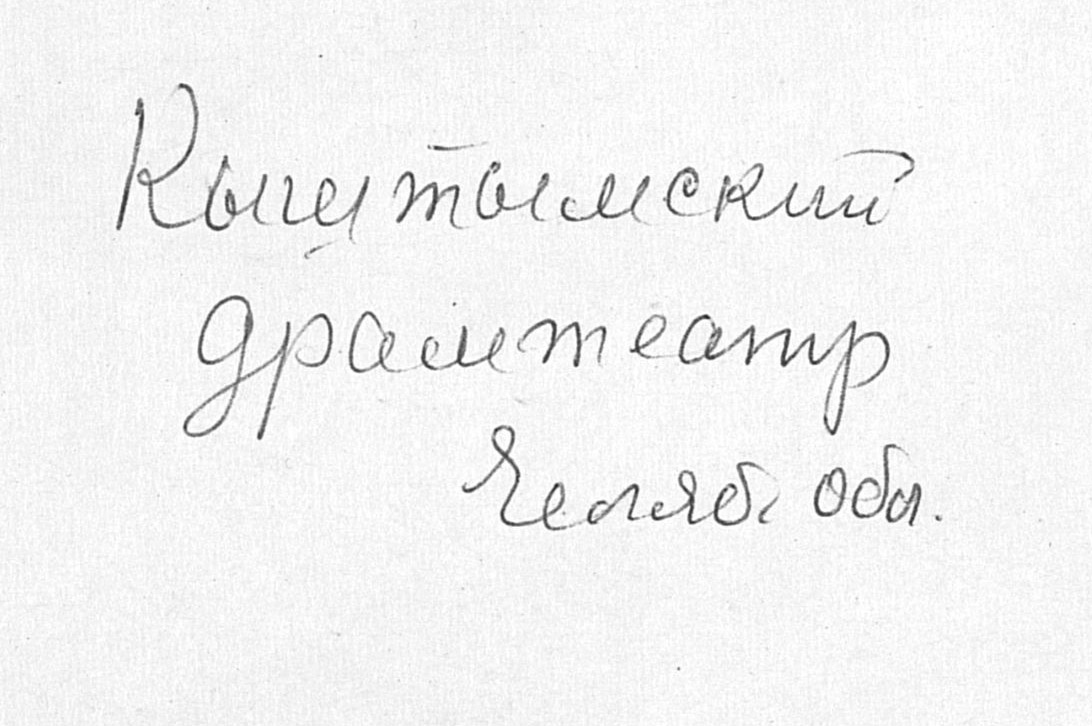 Кыштымский
драмтеатр
Челяб. обл.